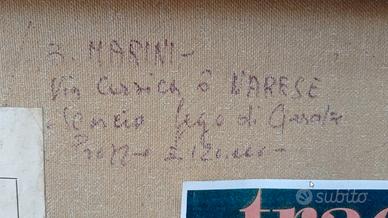 Z. MARINI -
Via Corsica 6 VARESE
Servizio Lago di Garda
Prezzo £ 120.000 -
subito
tra